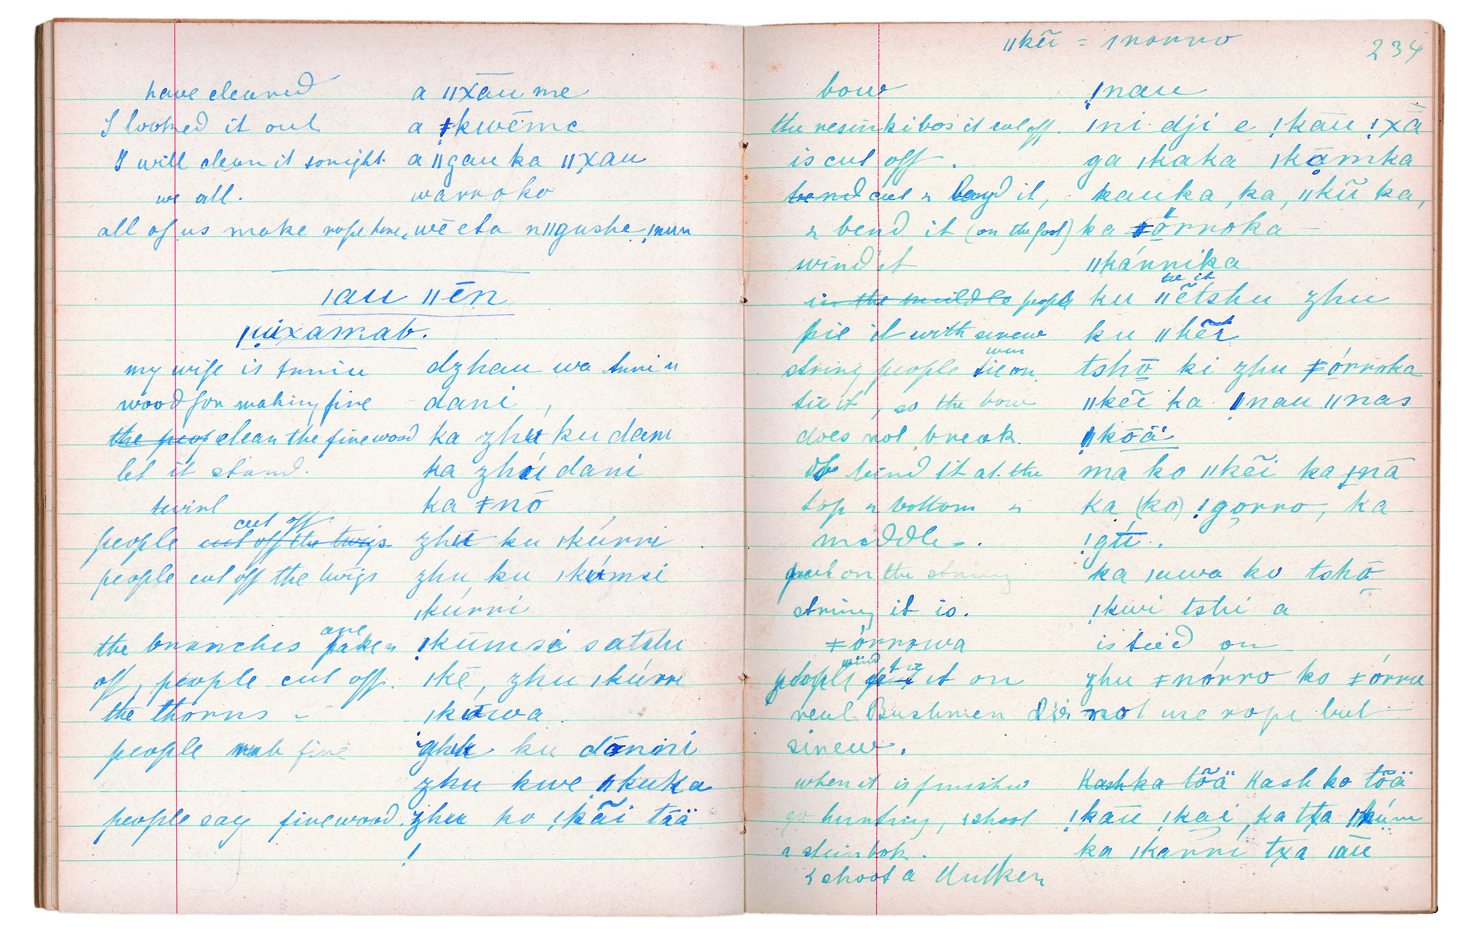 have cleaned a ǁχău me
I looked it out a ǂkwēme
I will clean it tonight. a ǁgau ka ǁχau
we all. warroko
all of us make rope here, wē eta nǁgushe
ǀau ǁēn
my wife is dzhau wa
wood for making fire dani,
clean the firewood ka zhu ku dani
let it stand. ka zhúi dani
twirl ka ǂnō
cut off
people cut off the twigs zhu ku ǀkúrri
people cut off the twigs zhu ku ǀkúmsi
ǀkúrri
are
the branches taken ǃkūmsi satshu
off, people cut off. ǀkē, zhu ǀkúrri
the thorns - ǀkuwa.
people rub fire ku dānini
zhu kwe ǁkuka
people say firewood. zhu ko ǃkãi tää
ǁkẽi = ǀnorro
234
bow ǃnau
it cut off, ǀni dji e ǃkāu ǃχā
is cut off. ga ǀkaka ǀkāmka
bend cut & it, kauka, ka, ǁkũ ka,
& bend it (on the foot) ka ǂōrroka -
wind it ǁkánnika
in the middle people ku ǁétshu zhu
tie it with sinew ku ǁkẽi
string people on tshō ki zhu ǂórroka
tie it, so the bow ǁkẽi ka ǃnau ǁnas
does not break. ǁkōä
bind it at the ma ko ǁkẽi ka ǂnā
top & bottom & ka (ko) ǃgorro, ka
middle. ǃgū.
put on the string ka ǀuwa ko tshō
string it is. ǃkwi tshi a
ǂórrowa is tied on
wind tie
people it on zhu ǂnórro ko ǂórru
real Bushmen do not use rope but
sinew.
when it is finished Kashka tõä Kash ko tõä
go hunting, shoot ǃkāu ǃkai, ka tχa
a steinbok. ka ǀkarri tχa ǀāu
& shoot a duiker